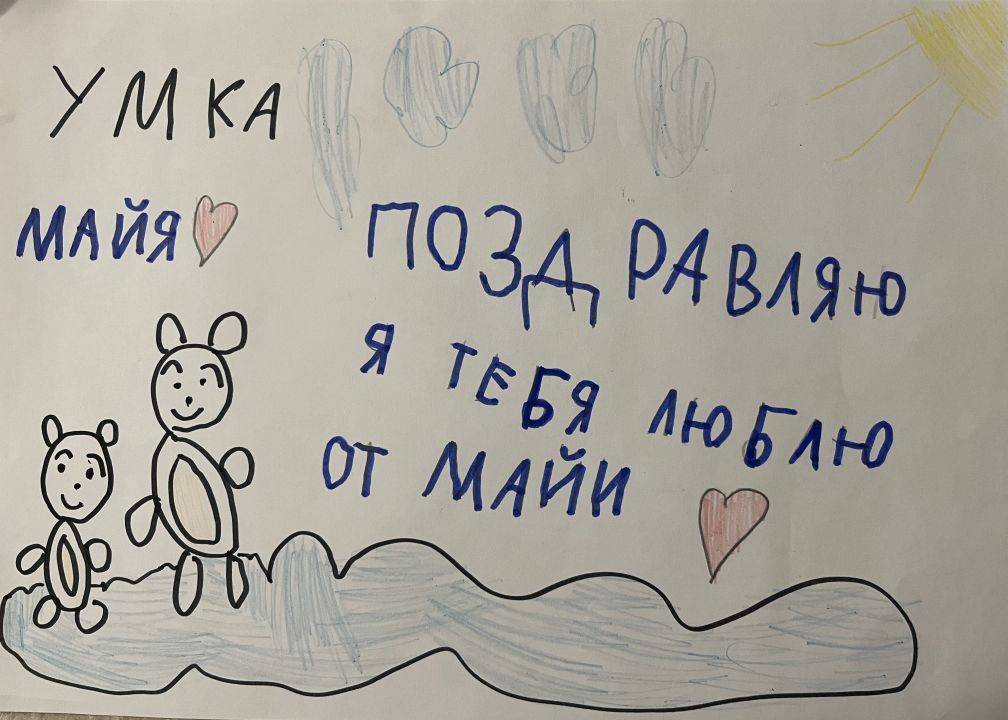 УМКА
МАЙЯ
ПОЗДРАВЛЯЮ
Я ТЕБЯ ЛЮБЛЮ
ОТ МАЙИ